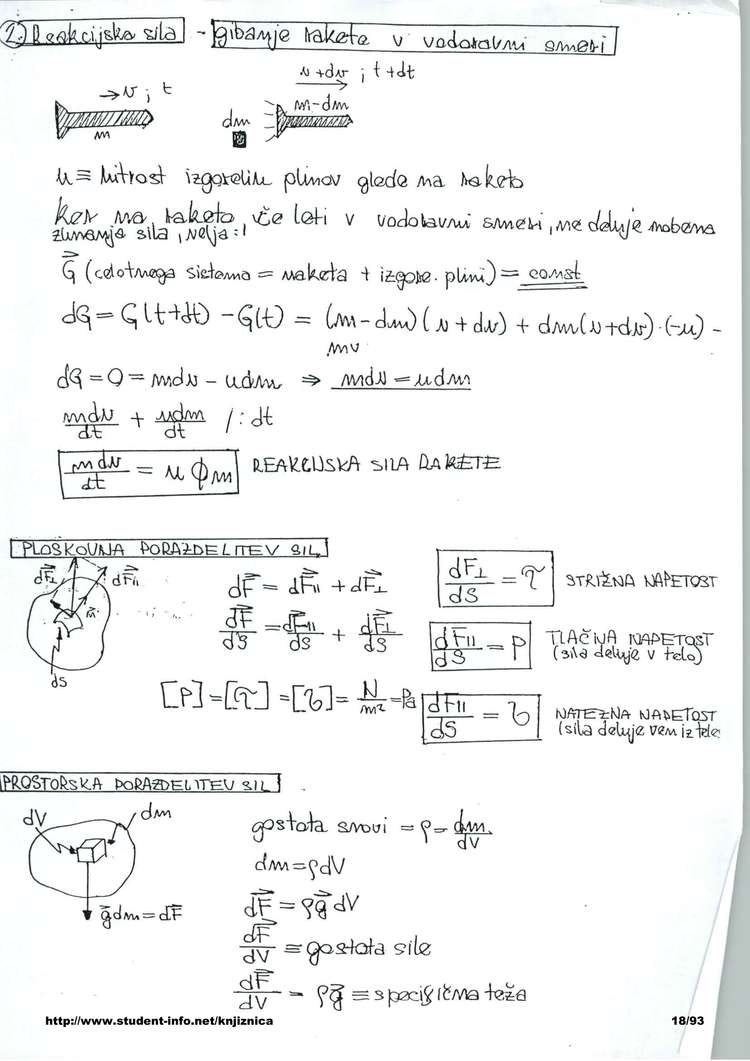 2. Reakcijska sila - gibanje rakete v vodoravni smeri
→ v ; t
v + dv ; t + dt
m - dm
dm
m
u ≡ hitrost izgorelih plinov glede na raketo
Ker na raketo, če leti v vodoravni smeri, ne deluje nobena
zunanja sila, velja:
G⃗ (celotnega sistema = raketa + izgore. plini) = const
dG = G(t+dt) - G(t) = (m-dm)(v+dv) + dm(v+dv)·(-u) -
mv
dG = 0 = mdv - udm ⇒ mdv = udm
mdv/dt + udm/dt /: dt
mdv/dt = u ϕm REAKCIJSKA SILA RAKETE
PLOSKOVNA PORAZDELITEV SIL
dF⃗⊥ dF⃗ıı
n⃗
dS
dF⃗ = dF⃗ıı + dF⃗⊥
dF⃗/dS = dF⃗ıı/dS + dF⃗⊥/dS
[P] = [τ] = [σ] = N/m² = Pa
dF⊥/dS = τ STRIŽNA NAPETOST
dFıı/dS = P TLAČNA NAPETOST
(sila deluje v telo)
dFıı/dS = σ NATEZNA NAPETOST
(sila deluje ven iz tele
PROSTORSKA PORAZDELITEV SIL
dV dm
g⃗dm = dF⃗
gostota snovi = ρ = dm/dV
dm = ρdV
dF⃗ = ρg⃗ dV
dF⃗/dV ≡ gostota sile
dF⃗/dV = ρg⃗ ≡ specifična teža
http://www.student-info.net/knjiznica 18/93